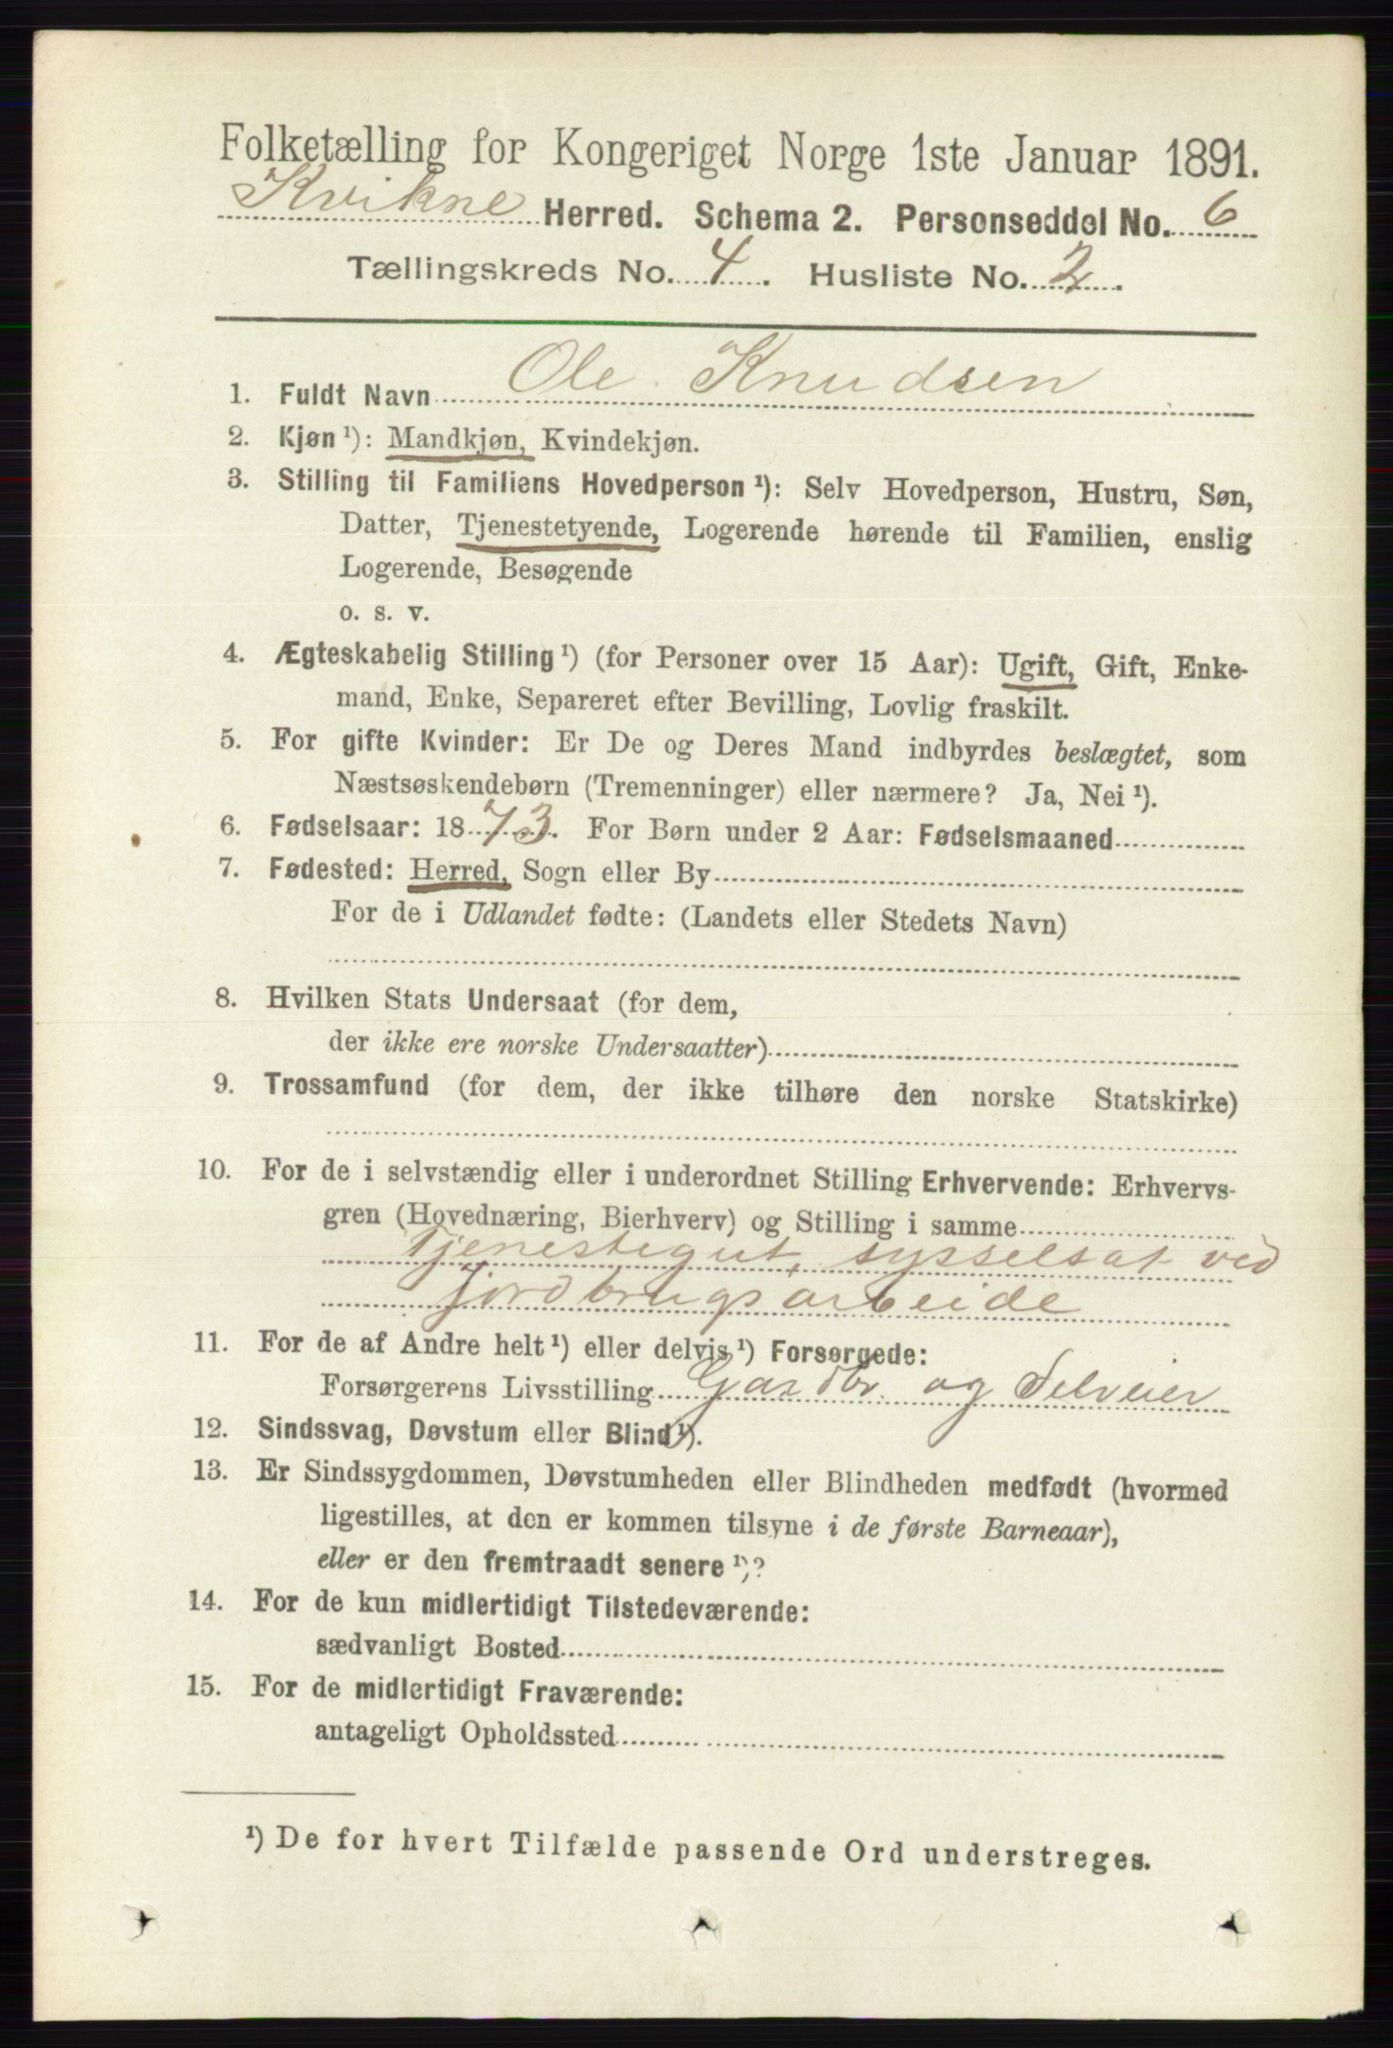 Folketælling for Kongeriget Norge 1ste Januar 1891.
Kvikne Herred. Schema 2. Personseddel No. 6
Tællingskreds No. 4. Husliste No. 2.
1. Fuldt Navn Ole Knudsen
2. Kjøn ¹): Mandkjøn, Kvindekjøn.
3. Stilling til Familiens Hovedperson ¹): Selv Hovedperson, Hustru, Søn,
Datter, Tjenestetyende, Logerende hørende til Familien, enslig
Logerende, Besøgende
o. s. v.
4. Ægteskabelig Stilling ¹) (for Personer over 15 Aar): Ugift, Gift, Enke-
mand, Enke, Separeret efter Bevilling, Lovlig fraskilt.
5. For gifte Kvinder: Er De og Deres Mand indbyrdes beslægtet, som
Næstsøskendebørn (Tremenninger) eller nærmere? Ja, Nei ¹).
6. Fødselsaar: 1873. For Børn under 2 Aar: Fødselsmaaned
7. Fødested: Herred, Sogn eller By
For de i Udlandet fødte: (Landets eller Stedets Navn)
8. Hvilken Stats Undersaat (for dem,
der ikke ere norske Undersaatter)
9. Trossamfund (for dem, der ikke tilhøre den norske Statskirke)
10. For de i selvstændig eller i underordnet Stilling Erhvervende: Erhvervs-
gren (Hovednæring, Bierhverv) og Stilling i samme
Tjenestegut, sysselsat ved
jordbrugsarbeide
11. For de af Andre helt ¹) eller delvis ¹) Forsørgede:
Forsørgerens Livsstilling Gardbr. og Selveier
12. Sindssvag, Døvstum eller Blind ¹).
13. Er Sindssygdommen, Døvstumheden eller Blindheden medfødt (hvormed
ligestilles, at den er kommen tilsyne i de første Barneaar),
eller er den fremtraadt senere ¹)?
14. For de kun midlertidigt Tilstedeværende:
sædvanligt Bosted
15. For de midlertidigt Fraværende:
antageligt Opholdssted
¹) De for hvert Tilfælde passende Ord understreges.